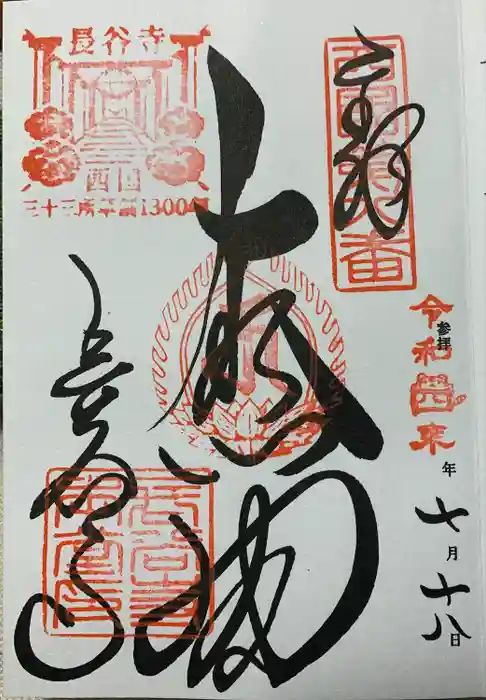 長谷寺
西国
三十三所草創1300年
奉拝
西国第八番
大悲閣
長谷寺
参拝
令和四年
年七月十八日